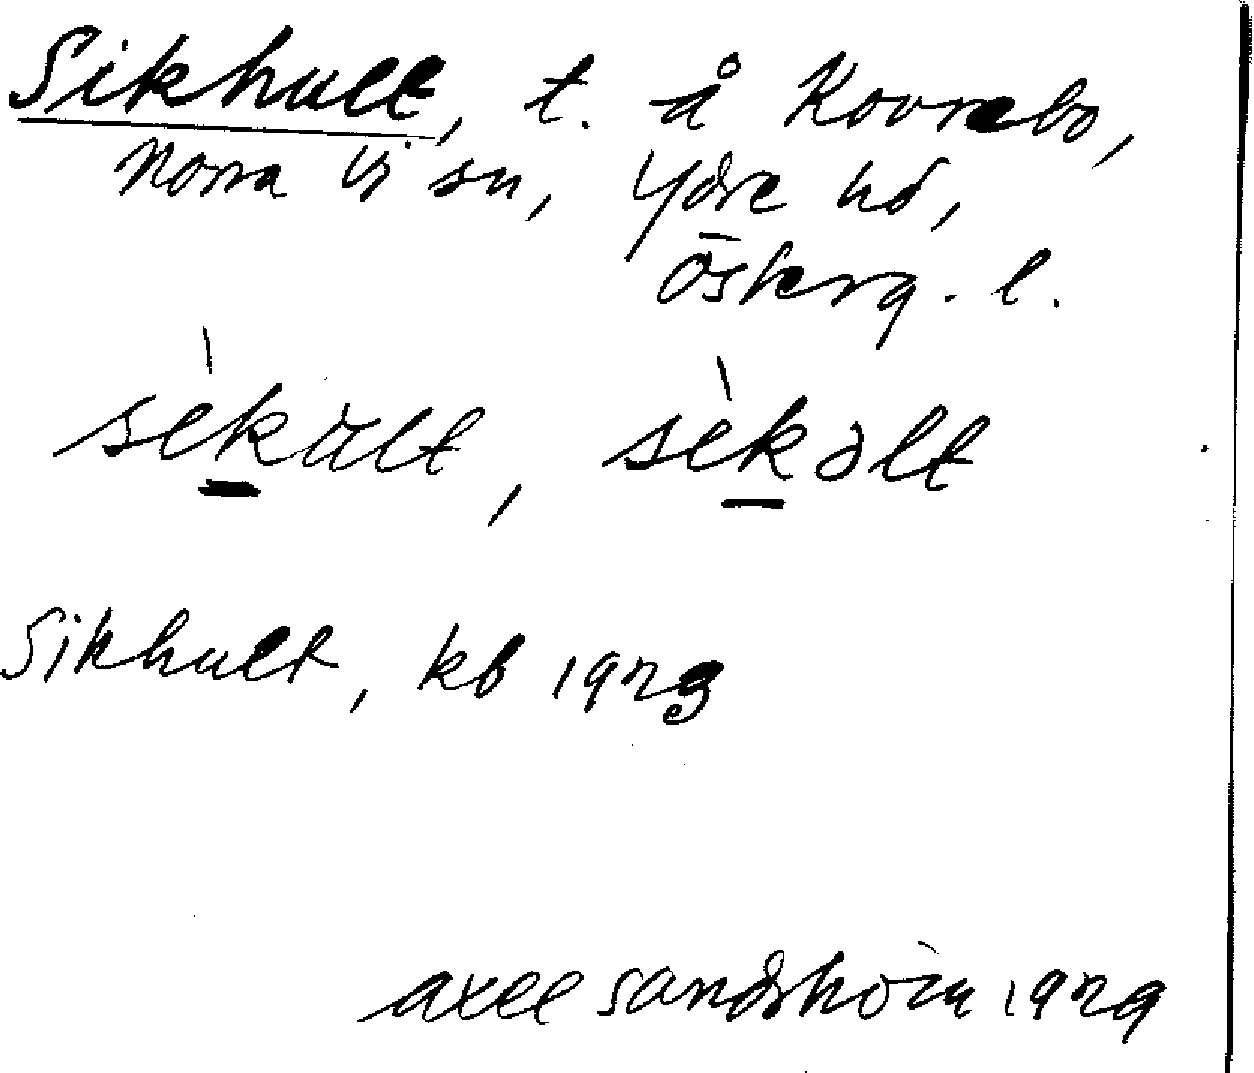 Sikhult, t. å Kovrebo,
Norra Vi sn, Ydre hd,
Österg. l.
sèkàlt, sèkòlt
Sikhult, kb 1929
Axel Sandsholm 1929